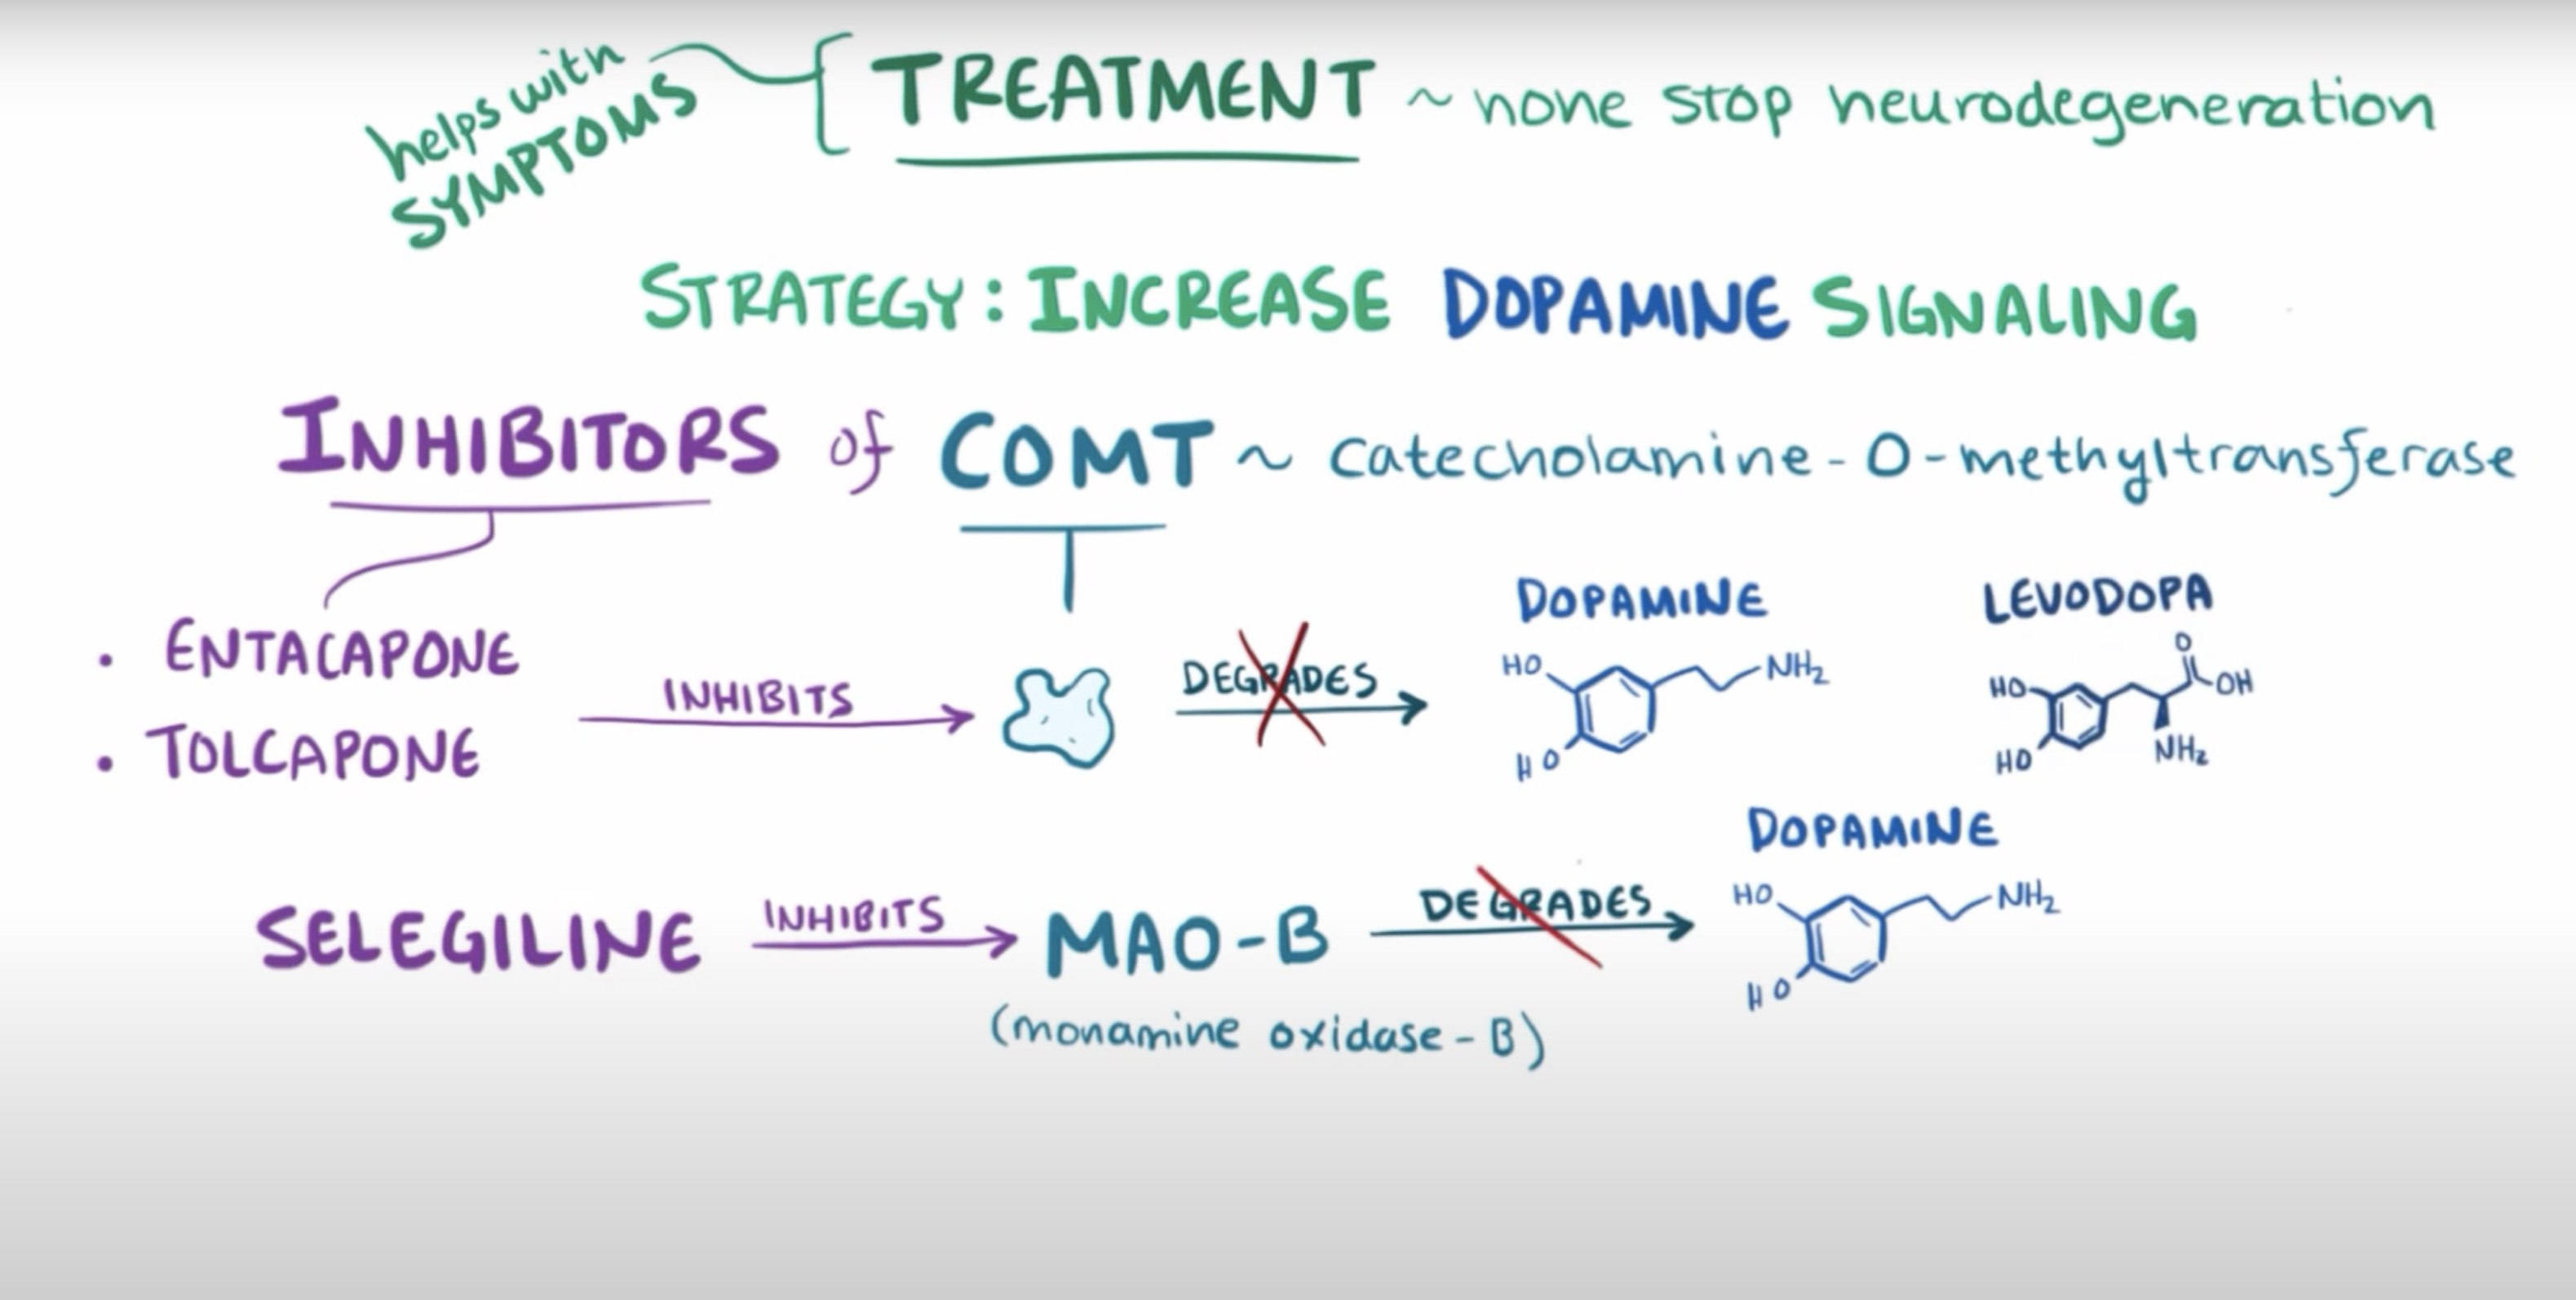 helps with
SYMPTOMS
TREATMENT ~ none stop neurodegeneration
STRATEGY: INCREASE DOPAMINE SIGNALING
INHIBITORS of COMT ~ catecholamine-O-methyltransferase
• ENTACAPONE
• TOLCAPONE
INHIBITS
DEGRADES
DOPAMINE
HO
HO
NH2
LEVODOPA
O
OH
HO
HO
NH2
SELEGILINE INHIBITS MAO-B DEGRADES
(monamine oxidase-B)
DOPAMINE
HO
HO
NH2